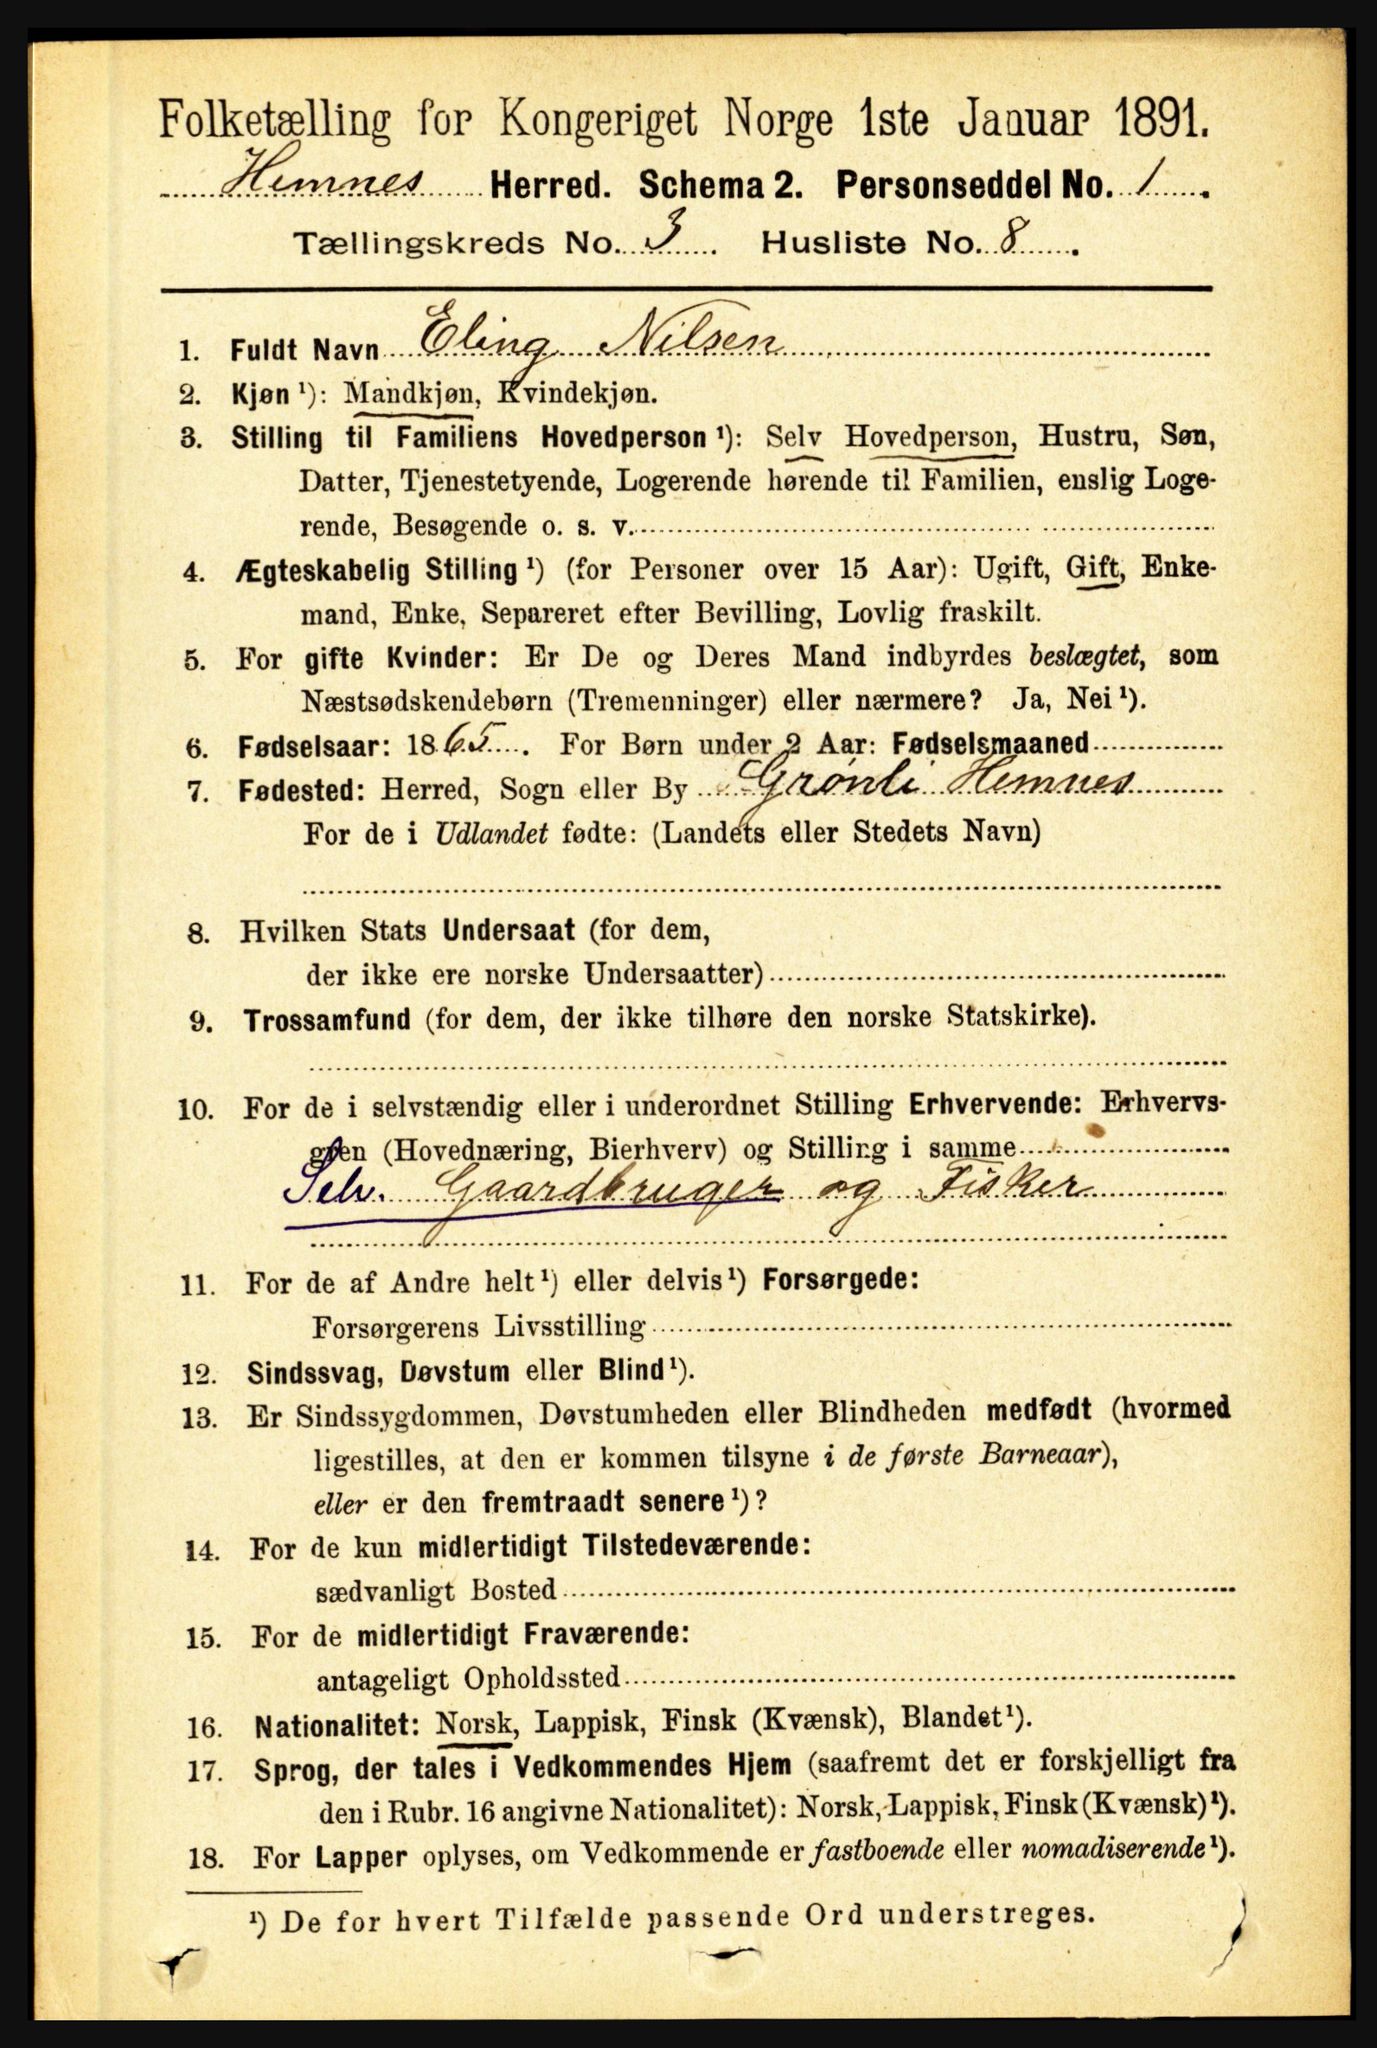 Folketælling for Kongeriget Norge 1ste Januar 1891.
Hemnes Herred. Schema 2. Personseddel No. 1.
Tællingskreds No. 3. Husliste No. 8.
1. Fuldt Navn Eling Nilsen
2. Kjøn ¹): Mandkjøn, Kvindekjøn.
3. Stilling til Familiens Hovedperson ¹): Selv Hovedperson, Hustru, Søn,
Datter, Tjenestetyende, Logerende hørende til Familien, enslig Loge-
rende, Besøgende o. s. v.
4. Ægteskabelig Stilling ¹) (for Personer over 15 Aar): Ugift, Gift, Enke-
mand, Enke, Separeret efter Bevilling, Lovlig fraskilt.
5. For gifte Kvinder: Er De og Deres Mand indbyrdes beslægtet, som
Næstsødskendebørn (Tremenninger) eller nærmere? Ja, Nei ¹).
6. Fødselsaar: 1865. For Børn under 2 Aar: Fødselsmaaned
7. Fødested: Herred, Sogn eller By Grønli Hemnes
For de i Udlandet fødte: (Landets eller Stedets Navn)
8. Hvilken Stats Undersaat (for dem,
der ikke ere norske Undersaatter)
9. Trossamfund (for dem, der ikke tilhøre den norske Statskirke).
10. For de i selvstændig eller i underordnet Stilling Erhvervende: Erhvervs-
gren (Hovednæring, Bierhverv) og Stilling i samme
Selv. Gaardbruger og Fisker
11. For de af Andre helt ¹) eller delvis ¹) Forsørgede:
Forsørgerens Livsstilling
12. Sindssvag, Døvstum eller Blind ¹).
13. Er Sindssygdommen, Døvstumheden eller Blindheden medfødt (hvormed
ligestilles, at den er kommen tilsyne i de første Barneaar),
eller er den fremtraadt senere ¹)?
14. For de kun midlertidigt Tilstedeværende:
sædvanligt Bosted
15. For de midlertidigt Fraværende:
antageligt Opholdssted
16. Nationalitet: Norsk, Lappisk, Finsk (Kvænsk), Blandet ¹).
17. Sprog, der tales i Vedkommendes Hjem (saafremt det er forskjelligt fra
den i Rubr. 16 angivne Nationalitet): Norsk, Lappisk, Finsk (Kvænsk) ¹).
18. For Lapper oplyses, om Vedkommende er fastboende eller nomadiserende ¹).
¹) De for hvert Tilfælde passende Ord understreges.